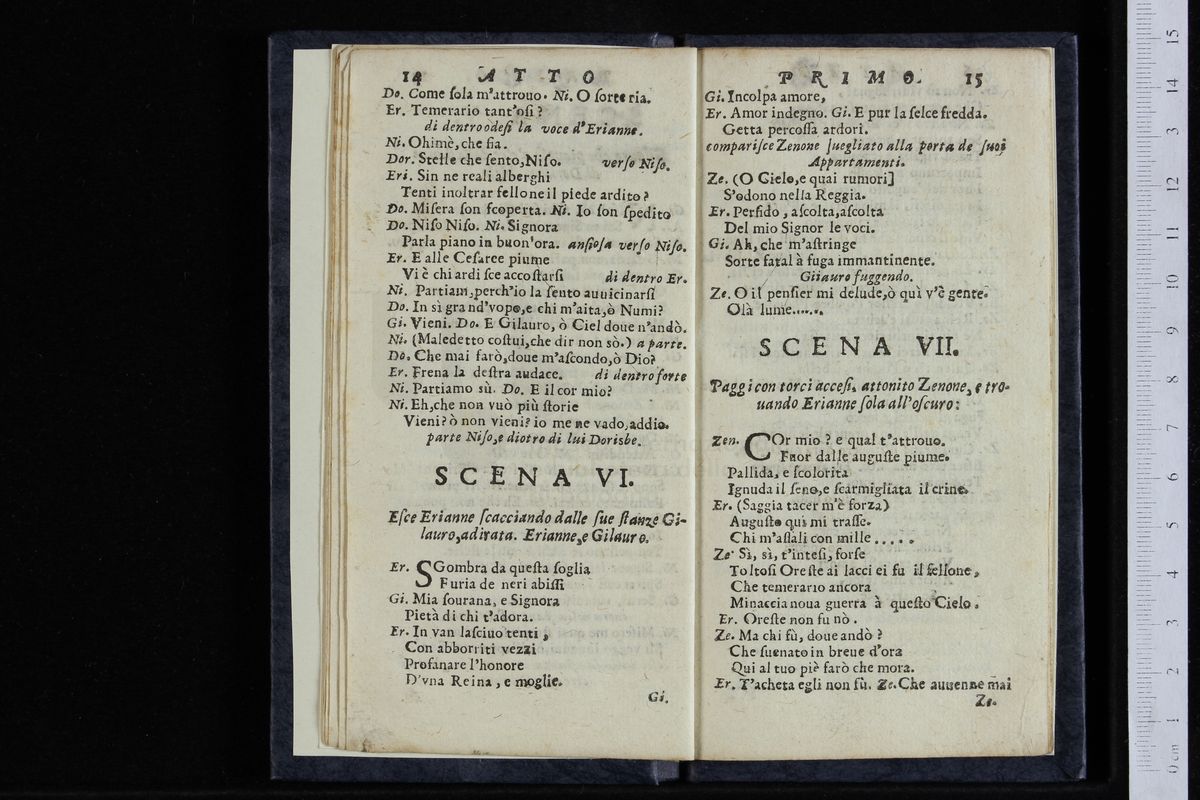 14 ATTO
Do. Come ſola m'attrouo. Ni. O ſorte ria.
Er. Temerario tant'oſi?
di dentro odeſi la voce d'Erianne.
Ni. Ohimè, che fia.
Dor. Stelle che ſento, Niſo. verſo Niſo.
Eri. Sin ne reali alberghi
Tenti inoltrar fellone il piede ardito?
Do. Miſera ſon ſcoperta. Ni. Io ſon ſpedito
Do. Niſo Niſo. Ni. Signora
Parla piano in buon'ora. anſioſa verſo Niſo.
Er. E alle Ceſaree piume
Vi è chi ardiſce accoſtarſi di dentro Er.
Ni. Partiam, perch'io la ſento auuicinarſi
Do. In sì grand'vopo, e chi m'aita, ò Numi?
Gi. Vieni. Do. E Gilauro, ò Ciel doue n'andò.
Ni. (Maledetto coſtui, che dir non sò.) a parte.
Do. Che mai farò, doue m'aſcondo, ò Dio?
Er. Frena la deſtra audace. di dentro forte
Ni. Partiamo sù. Do. E il cor mio?
Ni. Eh, che non vuò più ſtorie
Vieni? ò non vieni? io me ne vado, addio.
parte Niſo, e diotro di lui Dorisbe.
SCENA VI.
Eſce Erianne ſcacciando dalle ſue ſtanze Gi-
lauro, adirata. Erianne, e Gilauro.
Er. SGombra da queſta ſoglia
Furia de neri abiſſi
Gi. Mia ſourana, e Signora
Pietà di chi t'adora.
Er. In van laſciuo tenti,
Con abborriti vezzi
Profanare l'honore
D'vna Reina, e moglie.
Gi.
PRIMO. 15
Gi. Incolpa amore,
Er. Amor indegno. Gi. E pur la ſelce fredda.
Getta percoſſa ardori.
compariſce Zenone ſuegliato alla porta de ſuoi
Appartamenti.
Ze. (O Cielo, e quai rumori]
S'odono nella Reggia.
Er. Perfido, aſcolta, aſcolta
Del mio Signor le voci.
Gi. Ah, che m'aſtringe
Sorte fatal à fuga immantinente.
Giiauro fuggendo.
Ze. O il penſier mi delude, ò quì v'è gente.
Olà lume......
SCENA VII.
Paggi con torci acceſi, attonito Zenone, e tro-
uando Erianne ſola all'oſcuro:
Zen. COr mio? e qual t'attrouo.
Fuor dalle auguſte piume.
Pallida, e ſcolorita
Ignuda il ſeno, e ſcarmigliata il crine.
Er. (Saggia tacer m'è forza)
Auguſto quì mi traſſe.
Chi m'aſſalì con mille . . . . .
Ze. Sì, sì, t'inteſi, forſe
Toltoſi Oreſte ai lacci ei fu il fellone,
Che temerario ancora
Minaccia noua guerra à queſto Cielo.
Er. Oreſte non fu nò.
Ze. Ma chi fù, doue andò?
Che ſuenato in breue d'ora
Qui al tuo piè farò che mora.
Er. T'acheta egli non fù. Ze. Che auuenne mai
Ze.